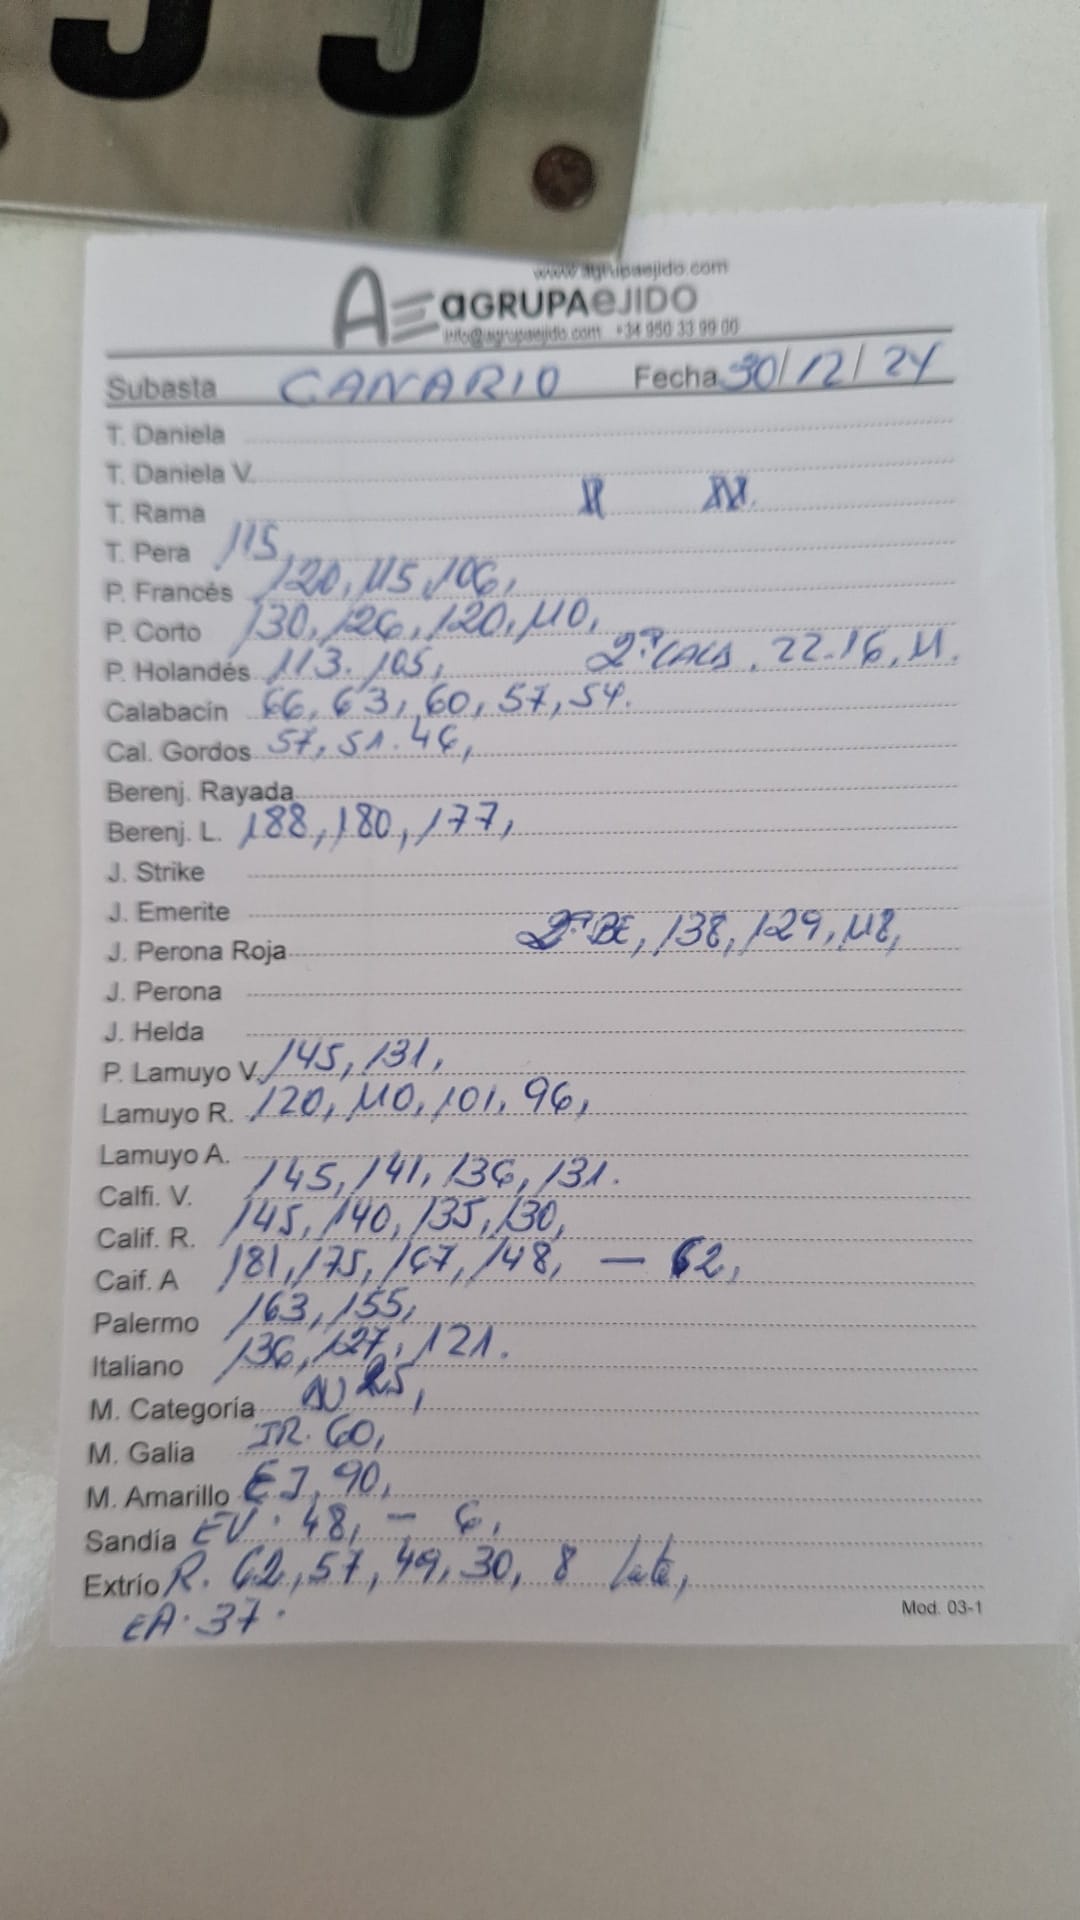 www.agrupaejido.com
AE aGRUPAeJIDO
info@agrupaejido.com +34 950 33 99 00
Subasta CANARIO Fecha 30/12/24
T. Daniela
T. Daniela V.
T. Rama
T. Pera 115,
P. Francés 120, 115, 106,
P. Corto 130, 126, 120, 110,
P. Holandés 113. 105, 2ª CALA. 22-16, 11.
Calabacín 66, 63, 60, 57, 54.
Cal. Gordos 57, 51. 46,
Berenj. Rayada
Berenj. L. 188, 180, 177,
J. Strike
J. Emerite
J. Perona Roja 2ª BE, 138, 129, 118,
J. Perona
J. Helda
P. Lamuyo V. 145, 131,
Lamuyo R. 120, 110, 101, 96,
Lamuyo A.
Calfi. V. 145, 141, 136, 131.
Calif. R. 145, 140, 135, 130,
Caif. A 181, 175, 167, 148, — 62,
Palermo 163, 155,
Italiano 136, 127, 121.
M. Categoría 25,
M. Galia IR. 60,
M. Amarillo EJ, 90,
Sandía EV. 48, - 6,
Extrío R. 62, 57, 49, 30, 8
EA. 37.
Mod. 03-1